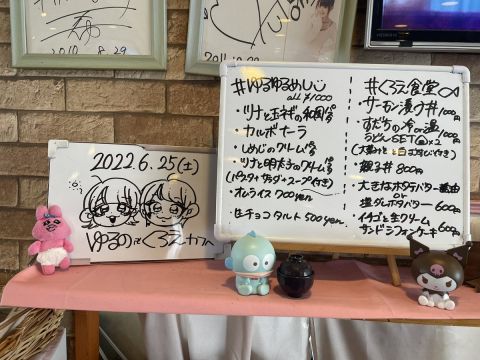 2010.8.29
2022.6.25(土)
ゆるのとくろえカフェ
#ゆるゆるめし
all ¥1000
・ツナと玉ネギの和風パスタ
・カルボナーラ
・しめじのクリームパスタ
・ツナと明太子のクリームパスタ
(パスタ+サラダ+スープ付き)
・オムライス 700yen.
・生チョコタルト 500yen.
#くろえ食堂
・サーモン漬け丼 1000円
・すだちの冷or温
うどんSET 1000円
・親子丼 800円
・大きなホタテバター醤油
or
塩ダレホタバター 600円
・イチゴと生クリーム
サンドシフォンケーキ 600円